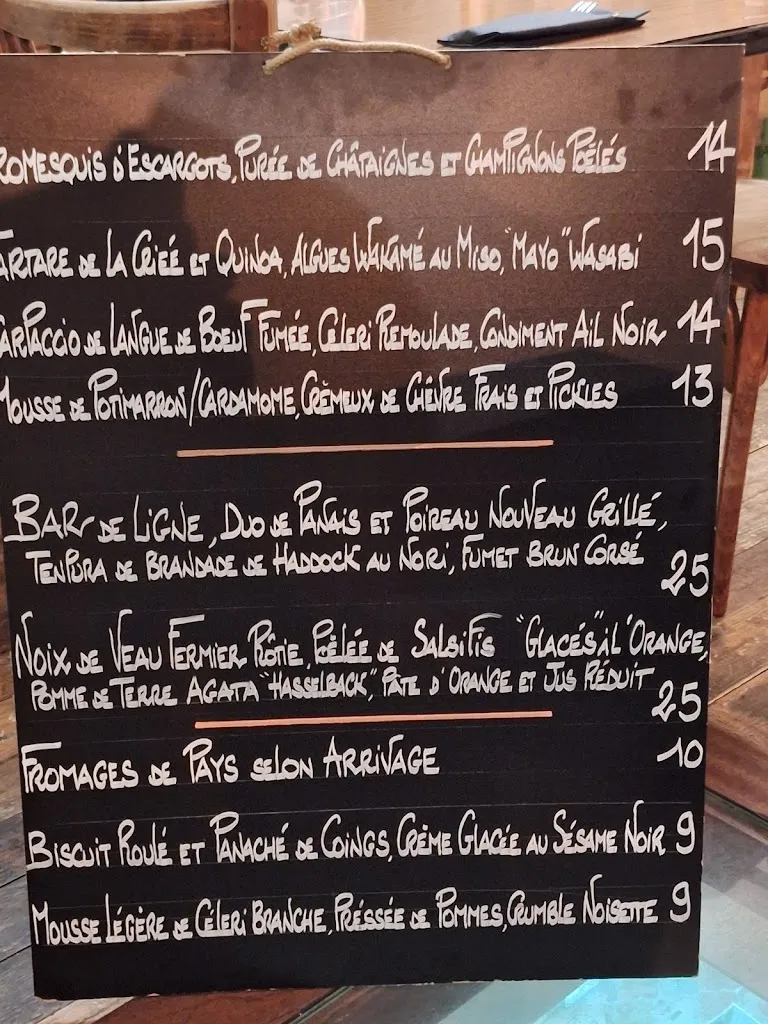 ROMESQUIS D'ESCARGOTS, PURÉE DE CHÂTAIGNES ET CHAMPIGNONS POÊLÉS 14
ARTARE DE LA CRIÉE ET QUINOA, ALGUES WAKAMÉ AU MISO, "MAYO" WASABI 15
ARPACCIO DE LANGUE DE BOEUF FUMÉE, CÉLERI REMOULADE, CONDIMENT AIL NOIR 14
MOUSSE DE POTIMARRON/CARDAMOME, CRÈMEUX DE CHÊVRE FRAIS ET PICKLES 13
BAR DE LIGNE, DUO DE PANAIS ET POIREAU NOUVEAU GRILLÉ,
TENPURA DE BRANDADE DE HADDOCK AU NORI, FUMET BRUN CORSÉ 25
NOIX DE VEAU FERMIER RÔTIE, POÊLÉE DE SALSIFIS "GLACÉS" À L'ORANGE,
POMME DE TERRE AGATA "HASSELBACK", PÂTE D'ORANGE ET JUS RÉDUIT 25
FROMAGES DE PAYS SELON ARRIVAGE 10
BISCUIT ROULÉ ET PANACHÉ DE COINGS, CRÈME GLACÉE AU SÉSAME NOIR 9
MOUSSE LÉGÈRE DE CÉLERI BRANCHE, PRÉSSÉE DE POMMES, CRUMBLE NOISETTE 9